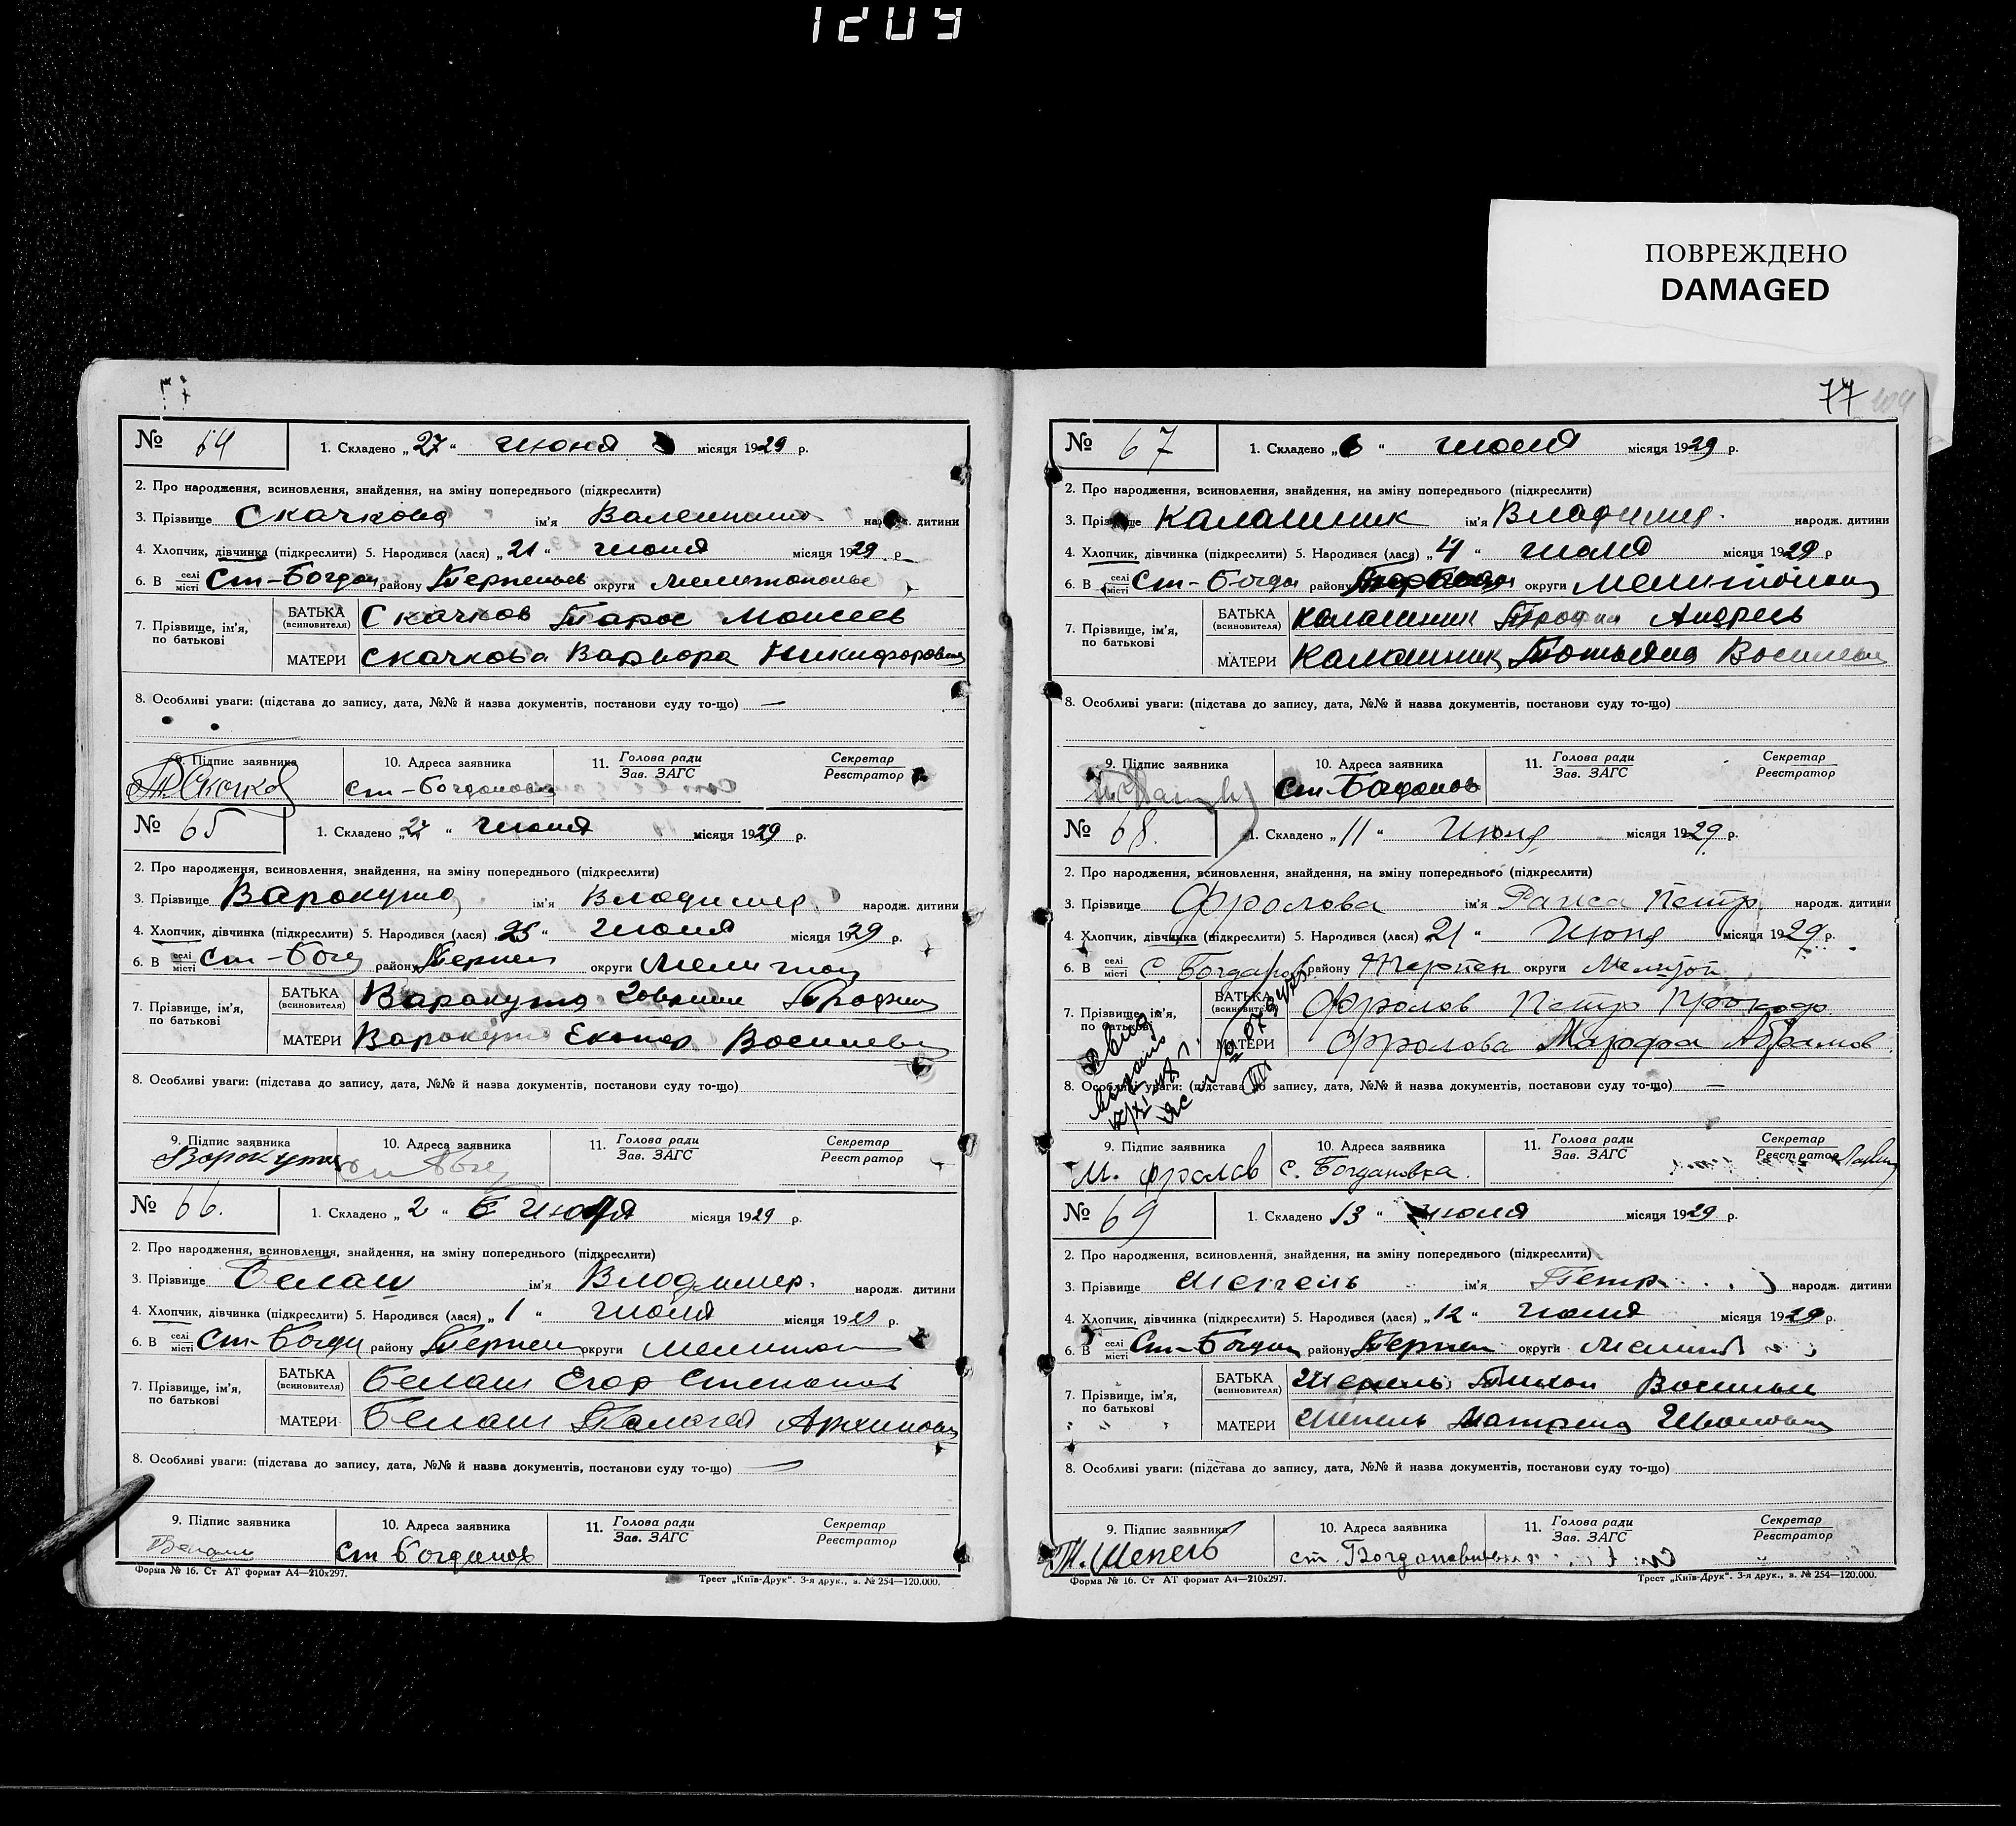 1209
ПОВРЕЖДЕНО
DAMAGED
№ 64
1. Складено „27“ июня місяця 1929 р.
2. Про народження, всиновлення, знайдення, на зміну попереднього (підкреслити)
3. Прізвище Скачкова ім'я Валентина народж. дитини
4. Хлопчик, дівчинка (підкреслити) 5. Народився (лася) „21“ июня місяця 1929 р
6. В селі місті Ст-Богдан району Терпеньев округи
7. Прізвище, ім'я, по батькові
БАТЬКА (всиновителя) Скачков Тарас Моисеев
МАТЕРИ Скачкова Варвара Никифоровна
8. Особливі уваги: (підстава до запису, дата, №№ й назва документів, постанови суду то-що) —
9. Підпис заявника 10. Адреса заявника 11. Голова ради Зав. ЗАГС Секретар Реєстратор
Т Скачков ст-Богдановка
№ 65
1. Складено „27“ июня місяця 1929 р.
2. Про народження, всиновлення, знайдення, на зміну попереднього (підкреслити)
3. Прізвище Варакута ім'я Владимир народж. дитини
4. Хлопчик, дівчинка (підкреслити) 5. Народився (лася) 25“ Июня місяця 1929 р.
6. В селі місті Ст-Богд району Терпен округи Мелитоп
7. Прізвище, ім'я, по батькові
БАТЬКА (всиновителя) Варакута Трофим
МАТЕРИ Варакута Екатер Васильев
8. Особливі уваги: (підстава до запису, дата, №№ й назва документів, постанови суду то-що)
9. Підпис заявника 10. Адреса заявника 11. Голова ради Зав. ЗАГС Секретар Реєстратор
Варакута
№ 66.
1. Складено „2“ Июля місяця 1929 р.
2. Про народження, всиновлення, знайдення, на зміну попереднього (підкреслити)
3. Прізвище Белаш ім'я Владимер. народж. дитини
4. Хлопчик, дівчинка (підкреслити) 5. Народився (лася) „1“ июля місяця 19 р.
6. В селі місті Ст-Богд району Терпен округи Мелитоп
7. Прізвище, ім'я, по батькові
БАТЬКА (всиновителя) Белаш Егор Степанов
МАТЕРИ Белаш Пелагея Архипов
8. Особливі уваги: (підстава до запису, дата, №№ й назва документів, постанови суду то-що) —
9. Підпис заявника 10. Адреса заявника 11. Голова ради Зав. ЗАГС Секретар Реєстратор
Белаш ст Богданов
Форма № 16. Ст АТ формат А4—210х297. Трест „Київ-Друк“. 3-я друк., з. № 254—120.000.
77
№ 67
1. Складено „6“ июля місяця 1929 р.
2. Про народження, всиновлення, знайдення, на зміну попереднього (підкреслити)
3. Прізвище Калашник ім'я Владимир. народж. дитини
4. Хлопчик, дівчинка (підкреслити) 5. Народився (лася) „4“ июля місяця 1929 р
6. В селі місті Ст-Богдан району округи Мелитополь
7. Прізвище, ім'я, по батькові
БАТЬКА (всиновителя) Калашник Трофим Андреев
МАТЕРИ Калашник Татьяна Васильев
8. Особливі уваги: (підстава до запису, дата, №№ й назва документів, постанови суду то-що)
9. Підпис заявника 10. Адреса заявника 11. Голова ради Зав. ЗАГС Секретар Реєстратор
ст-Багданов
№ 68.
1. Складено „11“ Июля місяця 1929 р.
2. Про народження, всиновлення, знайдення, на зміну попереднього (підкреслити)
3. Прізвище Фролова ім'я Раиса Петр. народж. дитини
4. Хлопчик, дівчинка (підкреслити) 5. Народився (лася) 21“ Июня місяця 1929 р.
6. В селі місті С. Богданов району Терпен округи Мелитоп
7. Прізвище, ім'я, по батькові
БАТЬКА (всиновителя) Фролов Петр Прокоф
МАТЕРИ Фролова Марфа Абрамов.
8. Особливі уваги: (підстава до запису, дата, №№ й назва документів, постанови суду то-що) —
9. Підпис заявника 10. Адреса заявника 11. Голова ради Зав. ЗАГС Секретар Реєстратор
М. Фролов С. Богдановка.
№ 69
1. Складено 13“ июля місяця 1929 р.
2. Про народження, всиновлення, знайдення, на зміну попереднього (підкреслити)
3. Прізвище Шепель ім'я Петр народж. дитини
4. Хлопчик, дівчинка (підкреслити) 5. Народився (лася) „12“ июля місяця 1929 р.
6. В селі місті Ст-Богдан району Терпен округи Мелитоп
7. Прізвище, ім'я, по батькові
БАТЬКА (всиновителя) Шепель Тихон Васильев
МАТЕРИ Шепель Матрена Иванов
8. Особливі уваги: (підстава до запису, дата, №№ й назва документів, постанови суду то-що)
9. Підпис заявника 10. Адреса заявника 11. Голова ради Зав. ЗАГС Секретар Реєстратор
Т. Шепель
Форма № 16. Ст АТ формат А4—210х297. Трест „Київ-Друк“. 3-я друк., з. № 254—120.000.